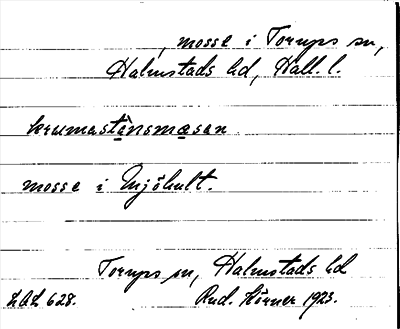 , mosse i Torups sn,
Halmstads hd, Hall. l.
krumastånsmåsan
mosse i Mjöhult.
Torups sn, Halmstads hd
LAL 628. Rud. Hörner 1923.